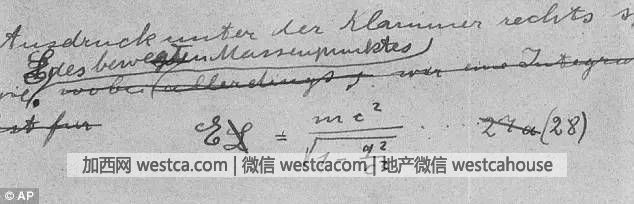 Ausdruck unter der Klammer rechts s
E des bewegten Massenpunktes
wobei (allerdings, war eine Integra
st für
E L = mc² / √(1 - q²/c²) . . . 27a (28)
加西网 westca.com | 微信 westcacom | 地产微信 westcahouse
© AP